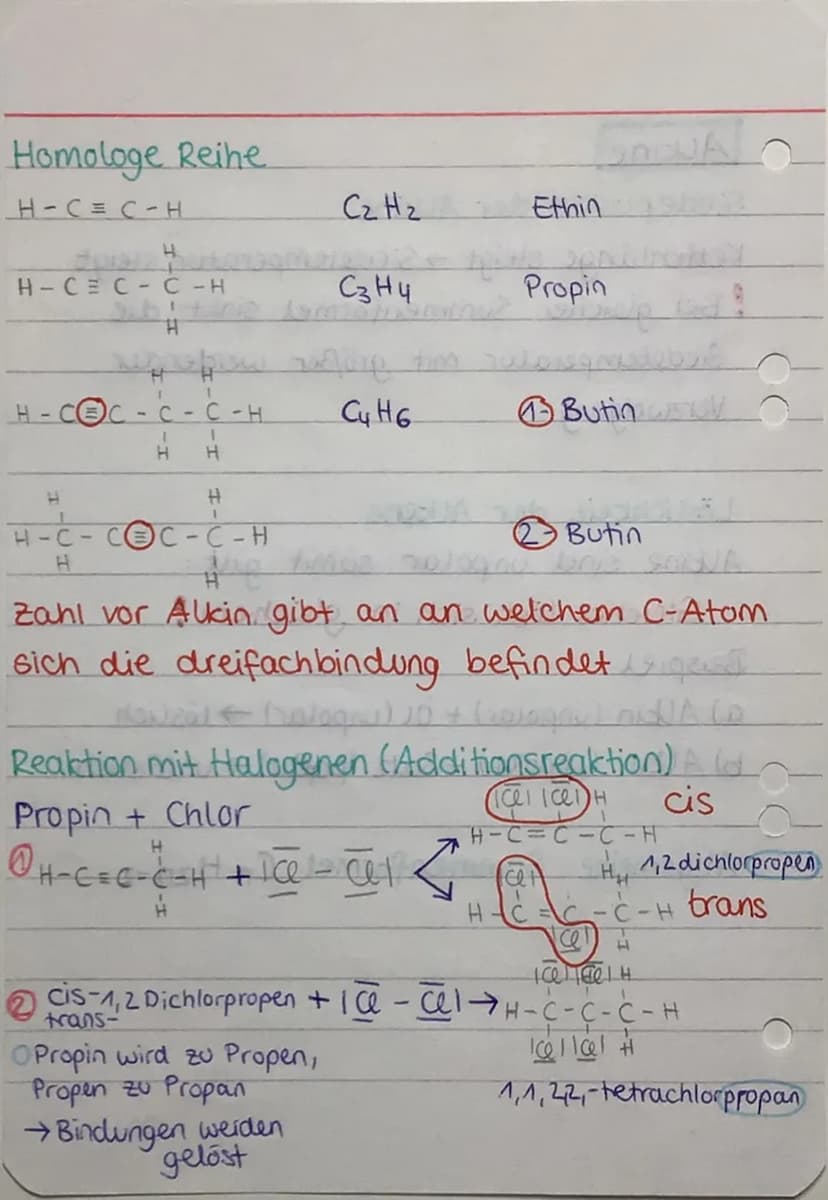 Homologe Reihe
H - C ≡ C - H    C2H2    Ethin
H
H - C ≡ C - C - H    C3H4    Propin
H
H H
H - C≡C - C - C - H    C4H6    1- Butin
H H
H H
H - C - C≡C - C - H    2- Butin
H H
Zahl vor Alkin gibt an an welchem C-Atom
sich die dreifachbindung befindet
Reaktion mit Halogenen (Additionsreaktion)
Propin + Chlor
|Cl| |Cl| H    cis
H - C = C - C - H
H    1,2 dichlorpropen
H
① H-C≡C-C-H + |Cl - Cl|
H
|Cl| H
H - C = C - C - H    trans
|Cl| H
|Cl| |Cl| H
② cis-1,2 Dichlorpropen + |Cl - Cl| → H-C-C-C-H
trans-
|Cl| |Cl| H
Propin wird zu Propen,
Propen zu Propan    1,1,2,2,-tetrachlorpropan
→ Bindungen werden
gelöst